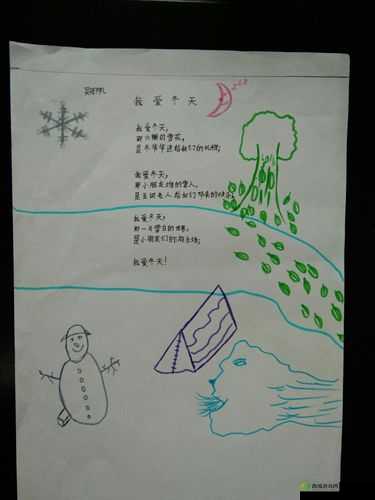 我爱冬天
我爱冬天,
那六瓣的雪花,
是冬爷爷送给我们的礼物;
我爱冬天,
那小朋友堆的雪人,
是圣诞老人给我们带来的快乐;
我爱冬天,
那一片雪白的世界,
是小朋友们的游乐场;
我爱冬天!